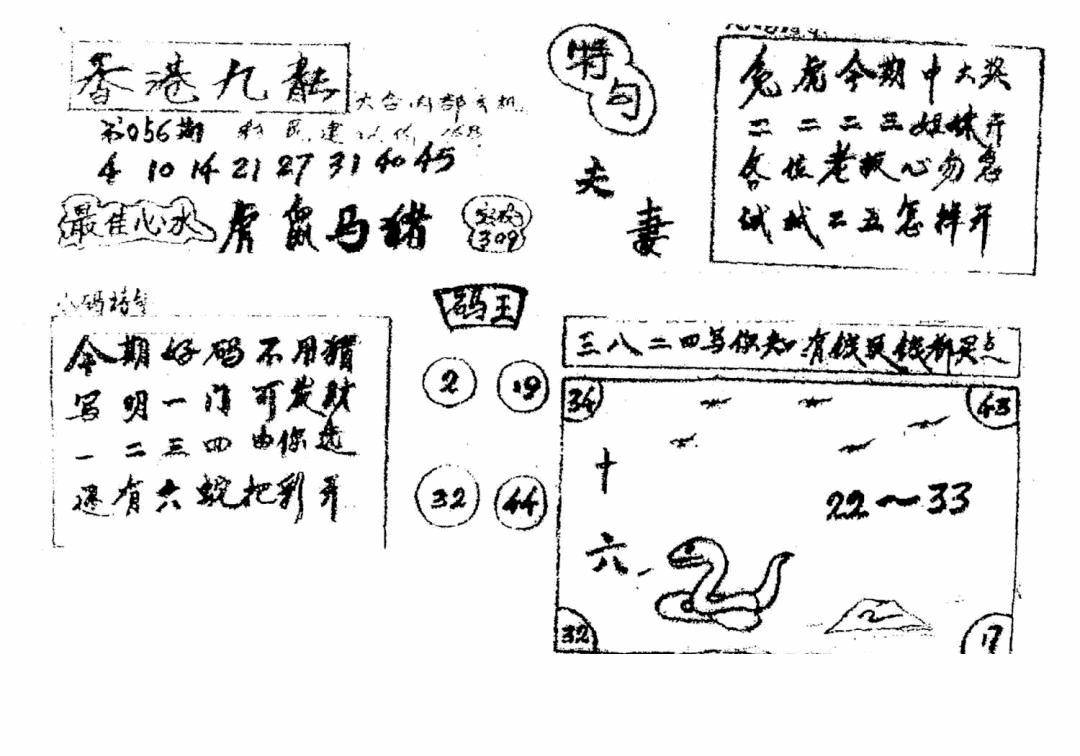 香港九龙
第056期
4 10 14 21 27 31 40 45
最佳心水 虎鼠马猪
309
特句
夫妻
兔虎今期中大奖
二二二三姐妹开
各位老板心勿急
试试二五怎样开
小码特
今期好码不用猜
写明一门可发财
一二三四由你选
还有六蛇把彩开
码王
2 19
32 44
三八二四写你知有钱
34 43
十六
22~33
32 17